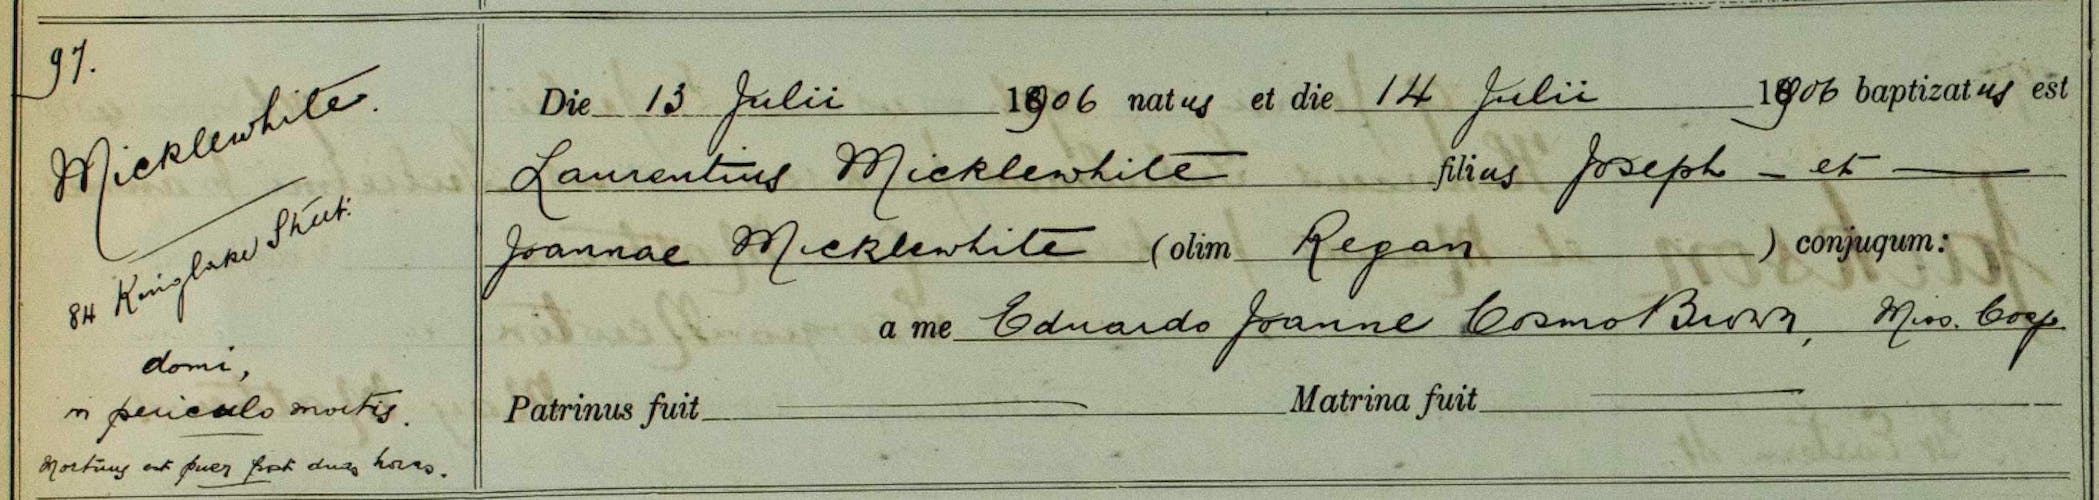 97.
Micklewhite.
84 Kinglake Street.
domi,
in periculo mortis.
Mortuus est puer post duas horas.
Die 13 Julii 1906 natus et die 14 Julii 1906 baptizatus est
Laurentius Micklewhite filius Joseph - et —
Joannae Micklewhite (olim Regan) conjugum:
a me Eduardo Joanne Cosmo Brown, Miss. Coap
Patrinus fuit — Matrina fuit —